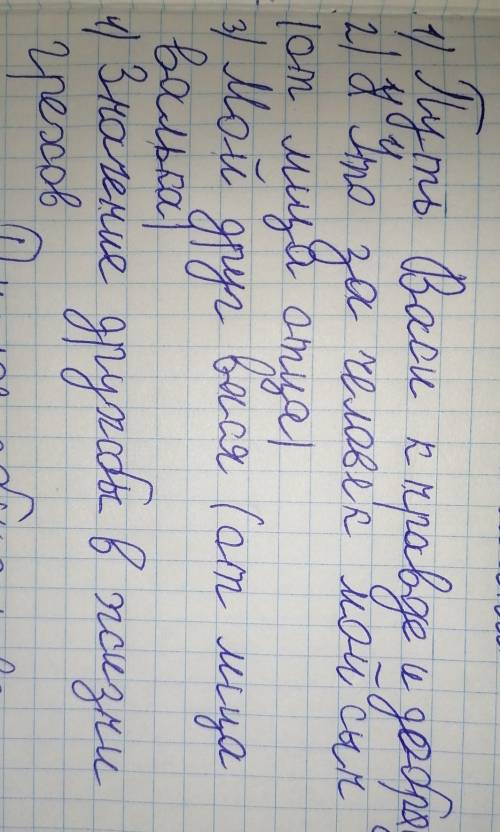 1) Путь Васи к правде и добру
2) Что за человек мой сын
(от лица отца)
3) Мой друг Вася (от лица
валька)
4) Значение дружбы в жизни
грехов